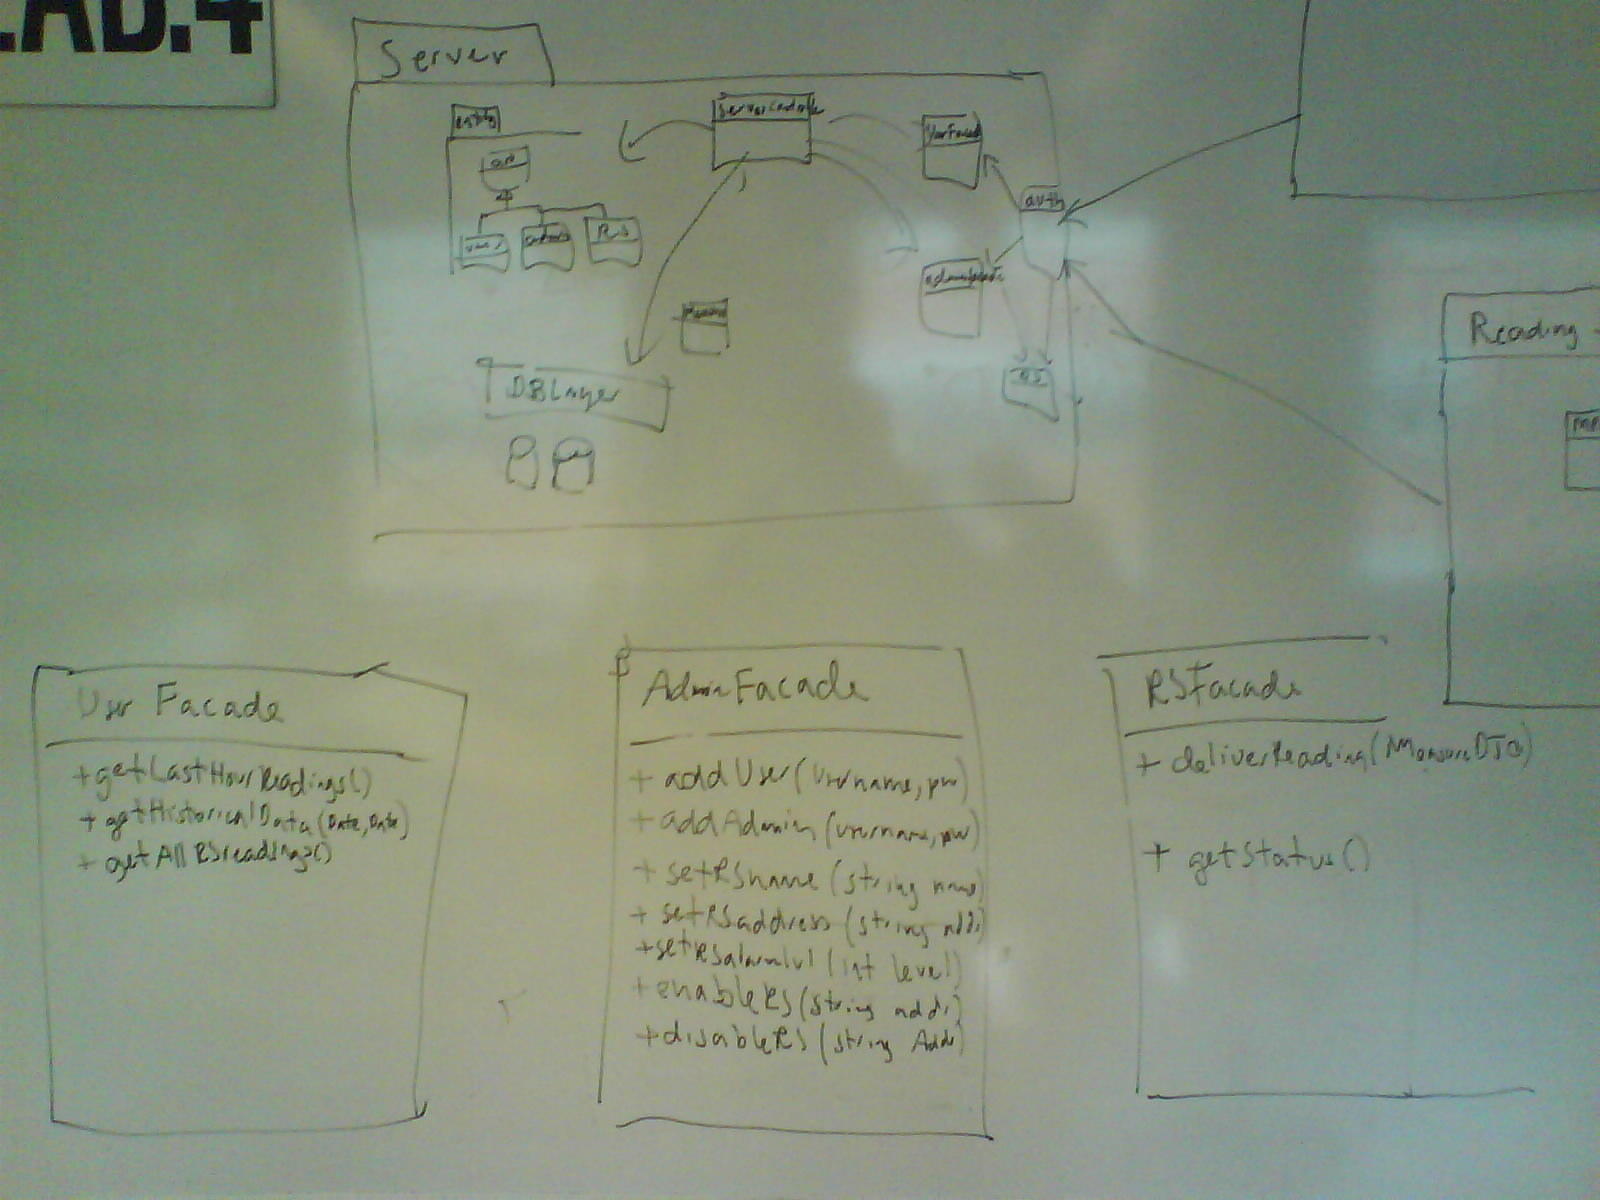 .AB.4
Server
entity
UserFacad
auth
RS
DBLayer
Reading
User Facade
+getLastHourReadings()
+ getHistoricalData(Date, Date)
+ getAllRSreadings()
AdminFacade
+ addUser(username, pw)
+ addAdmin(username, pw)
+ setRSname (string name)
+ setRSaddress (string addr)
+setRSalarmlvl (int level)
+enableRS (string addr)
+disableRS (string Addr)
RSFacade
+ deliverReading(MeasureDTO)
+ getStatus()